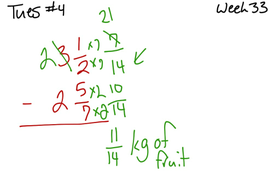 Tues #4
Week 33
21
2 3 1/2 ×7 ×7 7/14
- 2 5/7 ×2 ×2 10/14
11/14 kg of
fruit